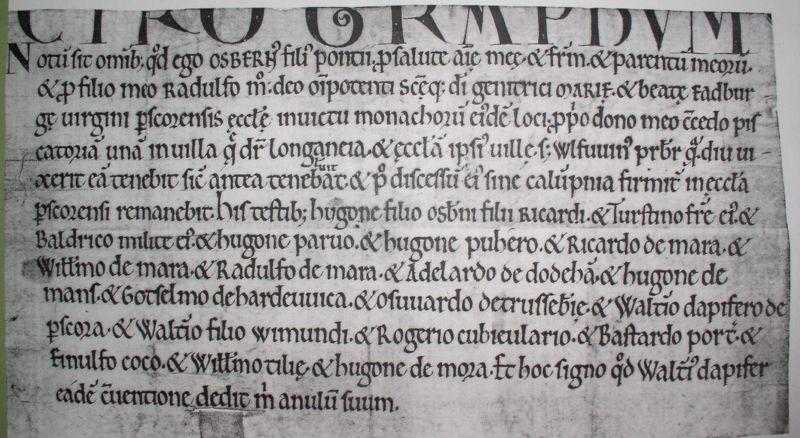 CYROGRAPDVM
Notũ sit omĩb; qđ ego OSBERN᷒ fili᷒ pontii, p salute aĩę meę, & fr̃m, & parentũ meorũ,
& p filio meo Radulfo m̃: deo oĩpotenti scẽq; dĩ genitrici MARIĘ, & beatę Eadbur
gę uirgini pscorensis ęcclę̃ inuictu monachorũ eiďe loci; pp̃o dono meo c̃cedo pis
catoriã unã in uilla q̨̃ dr̃ longaneia, & ęcclã ipsi᷒ uillę, s; Wlfuuin᷒ prb̃r q̨̃ diu ui
xerit eã tenebit sic̃ antea tenebat, & p᷒ discessũ ei᷒ sine calũpnia firmit̃ in ęcclã
pscorensi remanebit. his testib; hugone filio osb̃ni filii Ricardi, & Turstino fr̃e ei᷒, &
Baldrico milite ei᷒, & hugone paruo, & hugone pubero, & Ricardo de mara, &
Willmo de mara, & Radulfo de mara, & Adelardo de dodehã, & hugone de
mans̃, & Gotselmo de hardeuuica, & osuuardo de trussebię̃, & Walt̃io dapifero de
pscora, & Walt̃io filio wimundi, & Rogerio cubiculario, & Bastardo port̃, &
Ernulfo coco, & Willmo tilię, & hugone de mora. Et hoc signo qđ Walt̃i᷒ dapifer
eadẽ c̃uentione dedit m̃ anulũ suum.